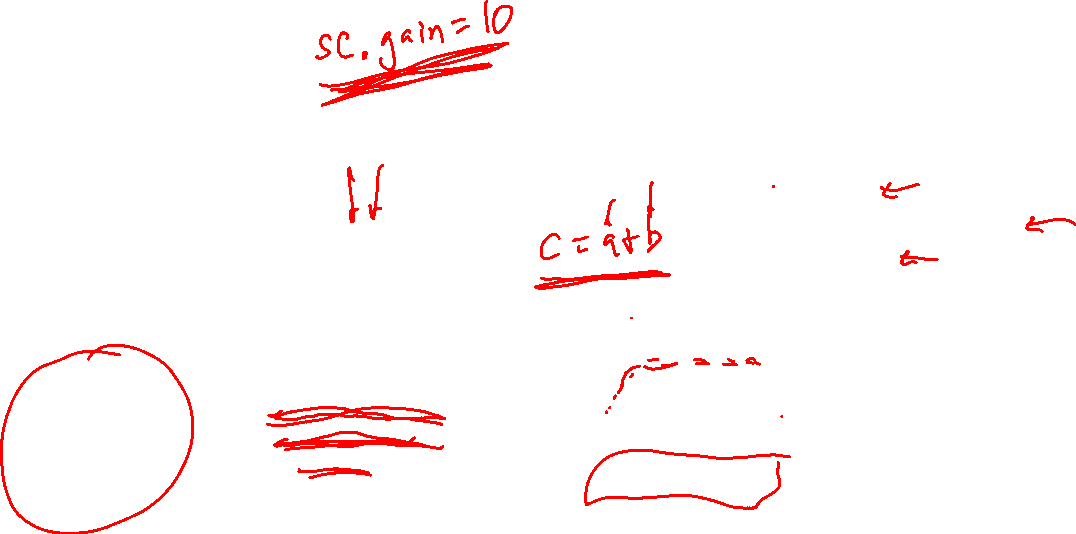 sc.gain=10
c=a+b